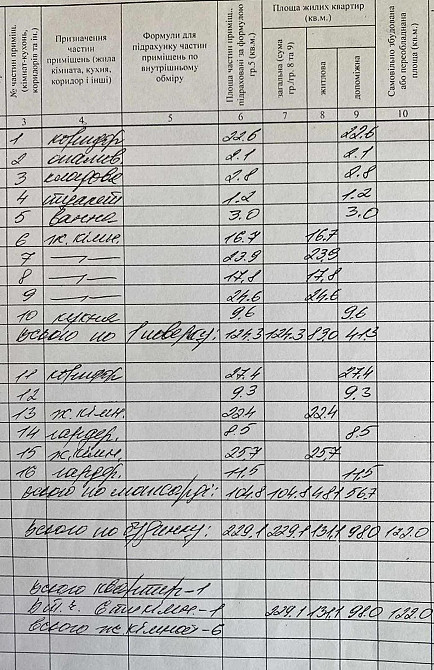 № частин приміщ. (кімнат-кухонь, коридорів та ін.)
Призначення частин приміщень (жила кімната, кухня, коридор і інші)
Формули для підрахунку частин приміщень по внутрішньому обміру
Площа частин приміщ., підраховані за формулою гр.5 (кв.м.)
Площа жилих квартир (кв.м.)
загальна (сума гр./гр. 8 та 9)
житлова
допоміжна
Самовільно збудована або переобладнана площа (кв.м.)
3 4 5 6 7 8 9 10
1 коридор 22.6 22.6
2 2.1 2.1
3 кладова 2.8 2.8
4 туалет 1.2 1.2
5 ванна 3.0 3.0
6 ж. кімн. 16.7 16.7
7 —〃— 23.9 23.9
8 —〃— 17,8 17,8
9 —〃— 24.6 24.6
10 кухня 9.6 9.6
Всього по 1 поверху: 124.3 124.3 83.0 41.3
11 коридор 27.4 27.4
12 9.3 9.3
13 ж. кімн. 22.4 22.4
14 гардер. 8.5 8.5
15 ж. кімн. 25.7 25.7
16 гардер. 11,5 11,5
Всього по мансарді: 104.8 104.8 48.1 56.7
Всього по будинку: 229.1 229.1 131,1 98.0 122.0
Всього квартир-1
В т.ч. 6тикімн-1 229.1 131,1 98.0 122.0
Всього ж кімнат-6